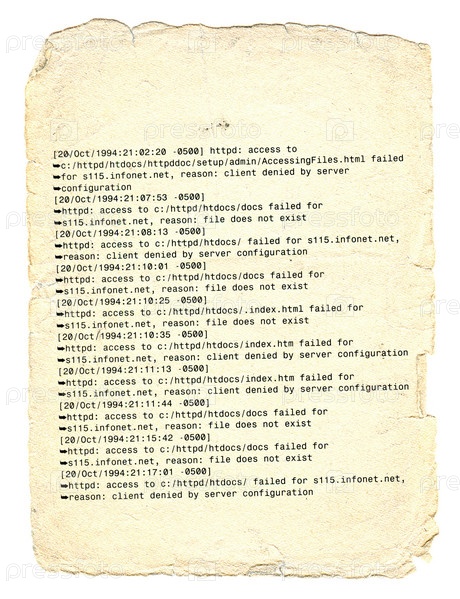 [20/Oct/1994:21:02:20 -0500] httpd: access to
➥c:/httpd/htdocs/httpddoc/setup/admin/AccessingFiles.html failed
➥for s115.infonet.net, reason: client denied by server
➥configuration
[20/Oct/1994:21:07:53 -0500]
➥httpd: access to c:/httpd/htdocs/docs failed for
➥s115.infonet.net, reason: file does not exist
[20/Oct/1994:21:08:13 -0500]
➥httpd: access to c:/httpd/htdocs/ failed for s115.infonet.net,
➥reason: client denied by server configuration
[20/Oct/1994:21:10:01 -0500]
➥httpd: access to c:/httpd/htdocs/docs failed for
➥s115.infonet.net, reason: file does not exist
[20/Oct/1994:21:10:25 -0500]
➥httpd: access to c:/httpd/htdocs/.index.html failed for
➥s115.infonet.net, reason: file does not exist
[20/Oct/1994:21:10:35 -0500]
➥httpd: access to c:/httpd/htdocs/index.htm failed for
➥s115.infonet.net, reason: client denied by server configuration
[20/Oct/1994:21:11:13 -0500]
➥httpd: access to c:/httpd/htdocs/index.htm failed for
➥s115.infonet.net, reason: client denied by server configuration
[20/Oct/1994:21:11:44 -0500]
➥httpd: access to c:/httpd/htdocs/docs failed for
➥s115.infonet.net, reason: file does not exist
[20/Oct/1994:21:15:42 -0500]
➥httpd: access to c:/httpd/htdocs/docs failed for
➥s115.infonet.net, reason: file does not exist
[20/Oct/1994:21:17:01 -0500]
➥httpd: access to c:/httpd/htdocs/ failed for s115.infonet.net,
➥reason: client denied by server configuration